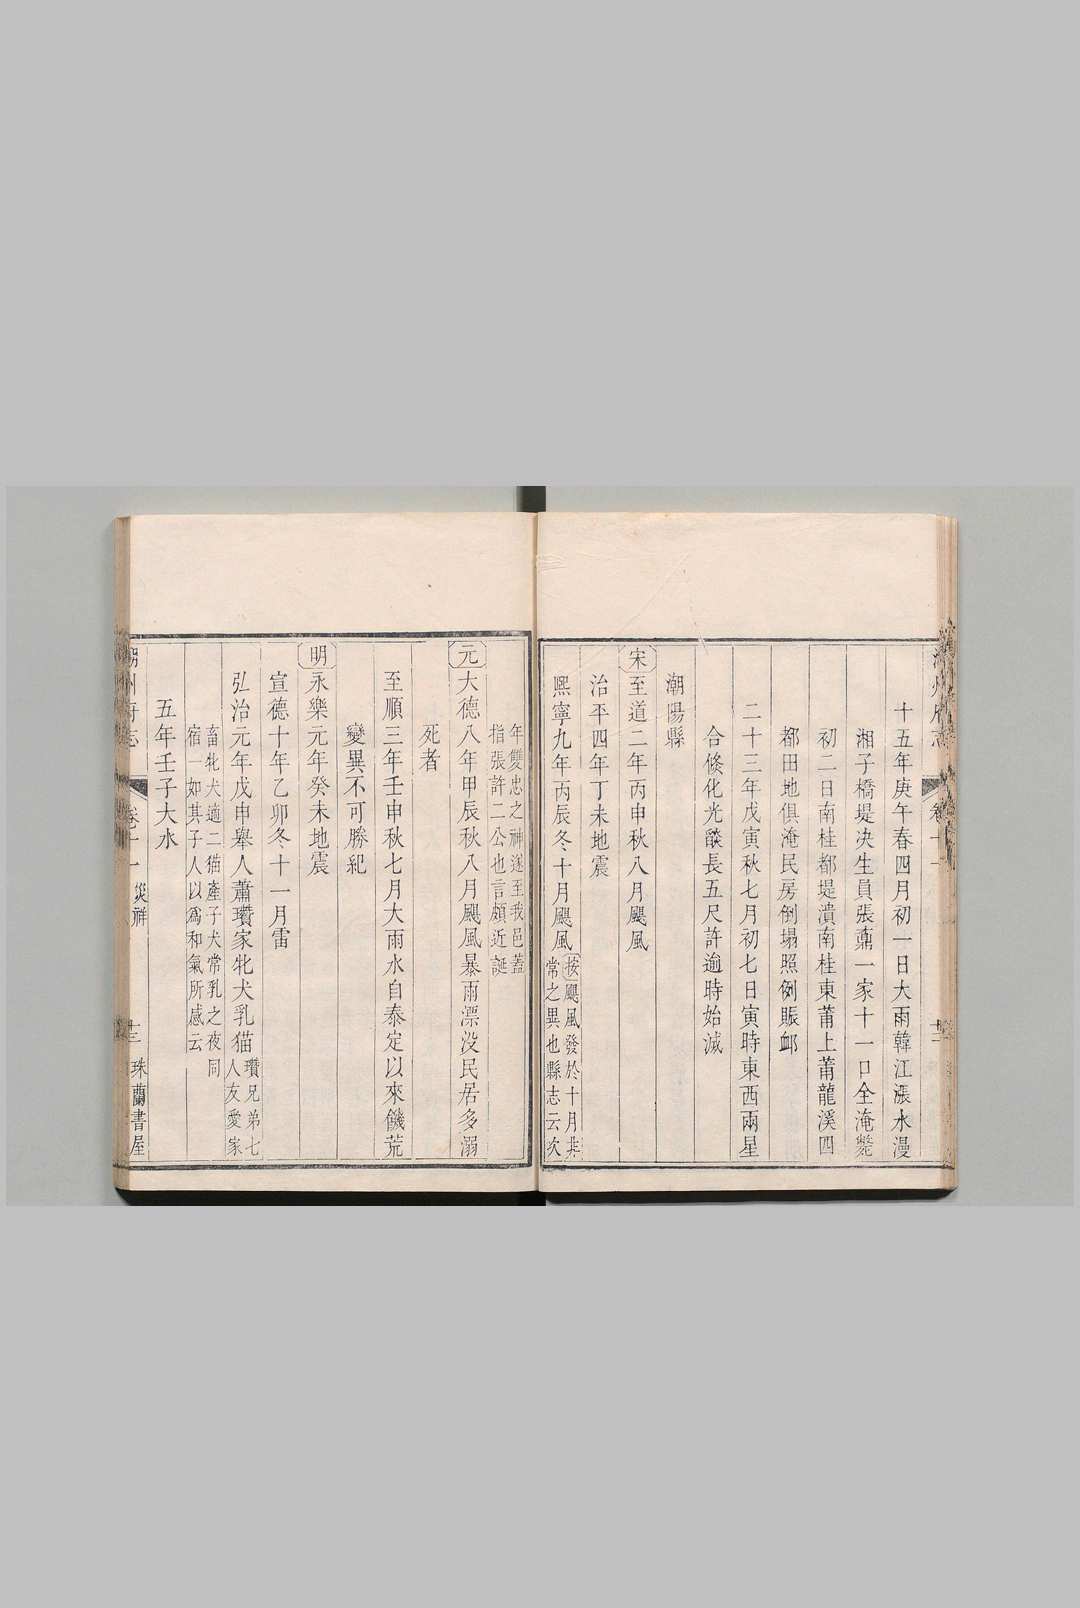 十五年庚午春四月初一日大雨韓江漲水漫
湘子橋堤决生員張鼒一家十一口全淹斃
初二日南桂都堤潰南桂東莆上莆龍溪四
都田地俱淹民房倒塌照例賑䘏
二十三年戊寅秋七月初七日寅時東西兩星
合條化光燄長五尺許逾時始滅
潮陽縣
宋至道二年丙申秋八月颶風
治平四年丁未地震
熙寧九年丙辰冬十月颶風按颶風發於十月非
常之異也縣志云次
年雙忠之神遂至我邑蓋
指張許二公也言頗近誕
元大德八年甲辰秋八月颶風暴雨漂没民居多溺
死者
至順三年壬申秋七月大雨水自泰定以來饑荒
變異不可勝紀
明永樂元年癸未地震
宣德十年乙卯冬十一月雷
弘治元年戊申舉人蕭瓚家牝犬乳猫瓚兄弟七
人友愛家
畜牝犬適二猫產子犬常乳之夜同
宿一如其子人以爲和氣所感云
五年壬子大水
潮州府志
卷十一
災祥
十三
珠蘭書屋